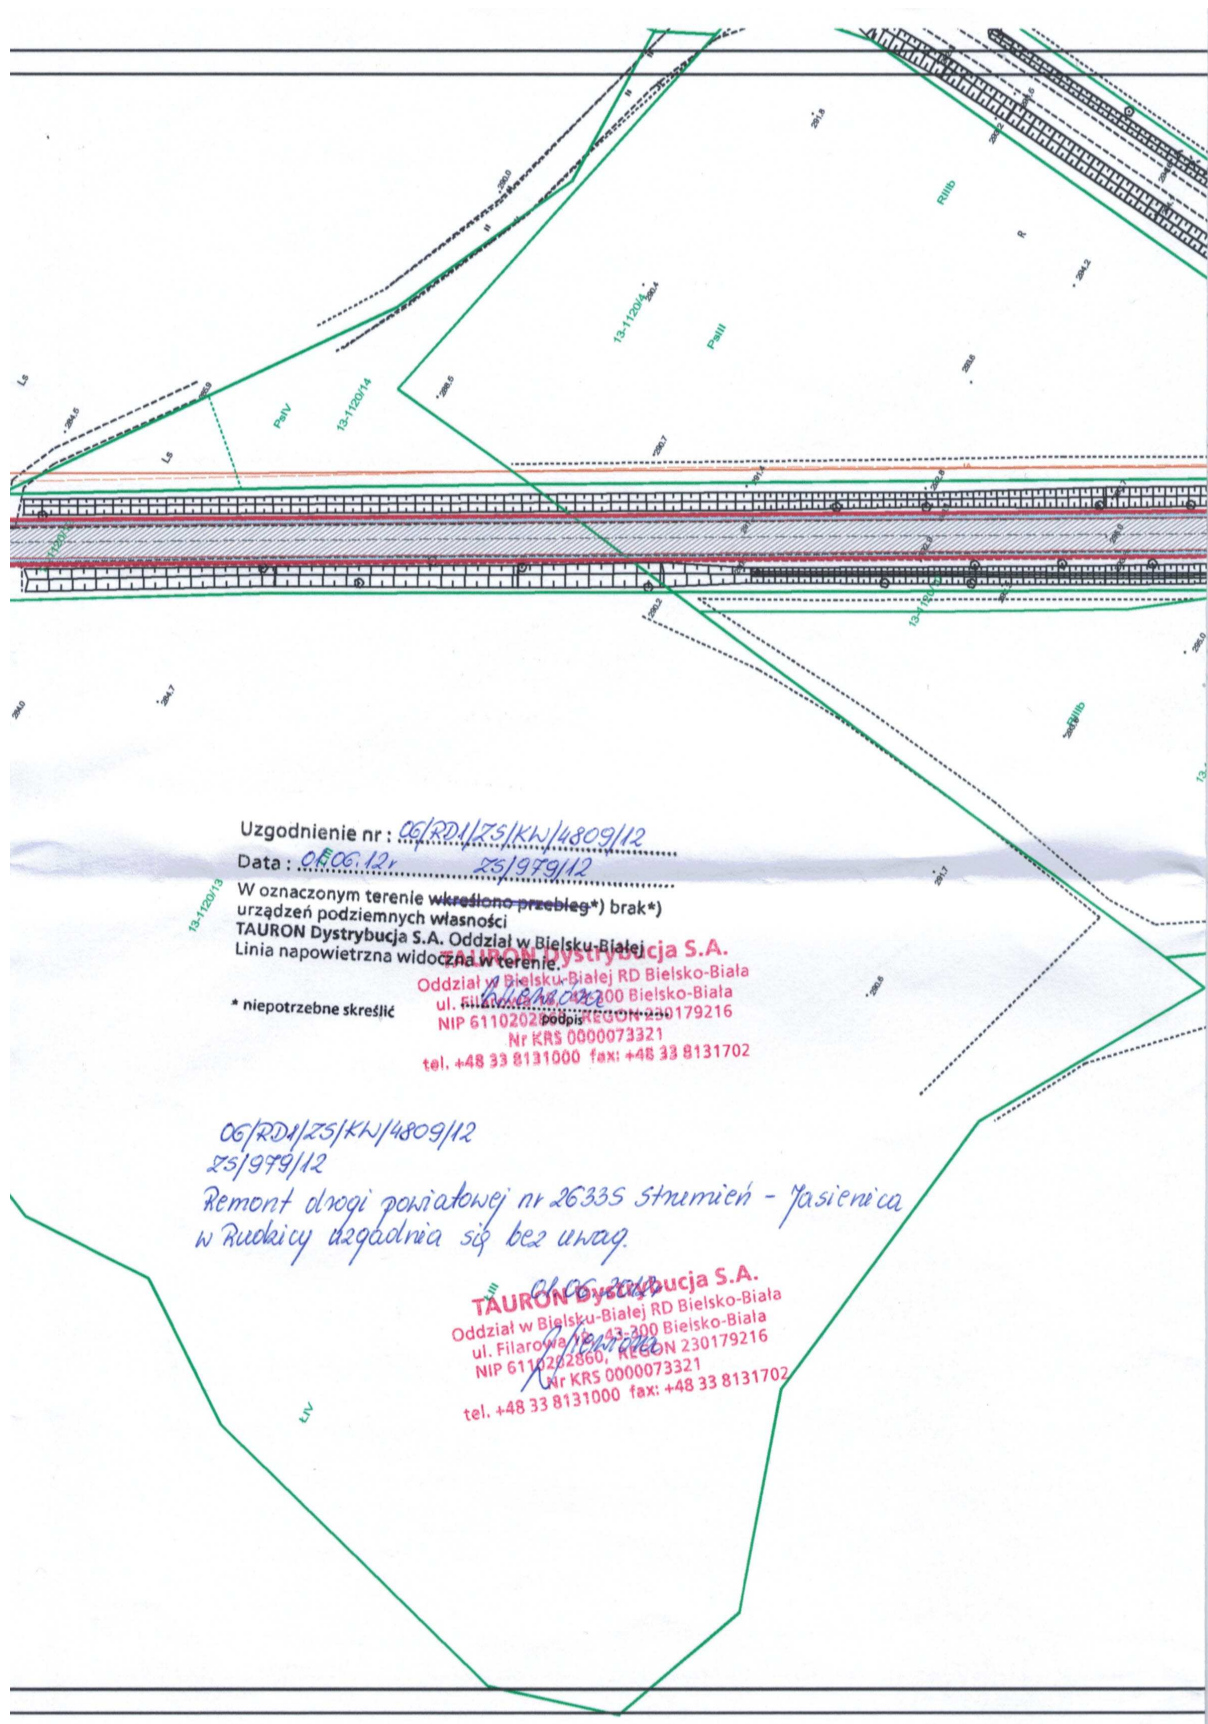 291,8
290,0
RIIIb
R
294,2
290,4
13-1120/4
PsIII
293,6
288,5
Ls
PsIV
13-1120/14
284,5
Ls
290,7
291,4
292,8
290,2
295,0
284,7
284,0
RIIIb
Uzgodnienie nr : 06/RD1/ZS/KW/4809/12
Data : 01.06.12r ZS/979/12
W oznaczonym terenie wkreślono przebieg*) brak*)
urządzeń podziemnych własności
TAURON Dystrybucja S.A. Oddział w Bielsku-Białej
Linia napowietrzna widoczna w terenie.
* niepotrzebne skreślić
podpis
13-1120/13
291,7
290,6
TAURON Dystrybucja S.A.
Oddział w Bielsku-Białej RD Bielsko-Biała
ul. Filarowa 43-300 Bielsko-Biała
NIP 6110202860, REGON 230179216
Nr KRS 0000073321
tel. +48 33 8131000 fax: +48 33 8131702
06/RD1/ZS/KW/4809/12
ZS/979/12
Remont drogi powiatowej nr 2633S Strumień - Jasienica
w Rudzicy uzgadnia się bez uwag.
01.06.2012
ŁIII
TAURON Dystrybucja S.A.
Oddział w Bielsku-Białej RD Bielsko-Biała
ul. Filarowa 43-300 Bielsko-Biała
NIP 6110202860, REGON 230179216
Nr KRS 0000073321
tel. +48 33 8131000 fax: +48 33 8131702
ŁIV